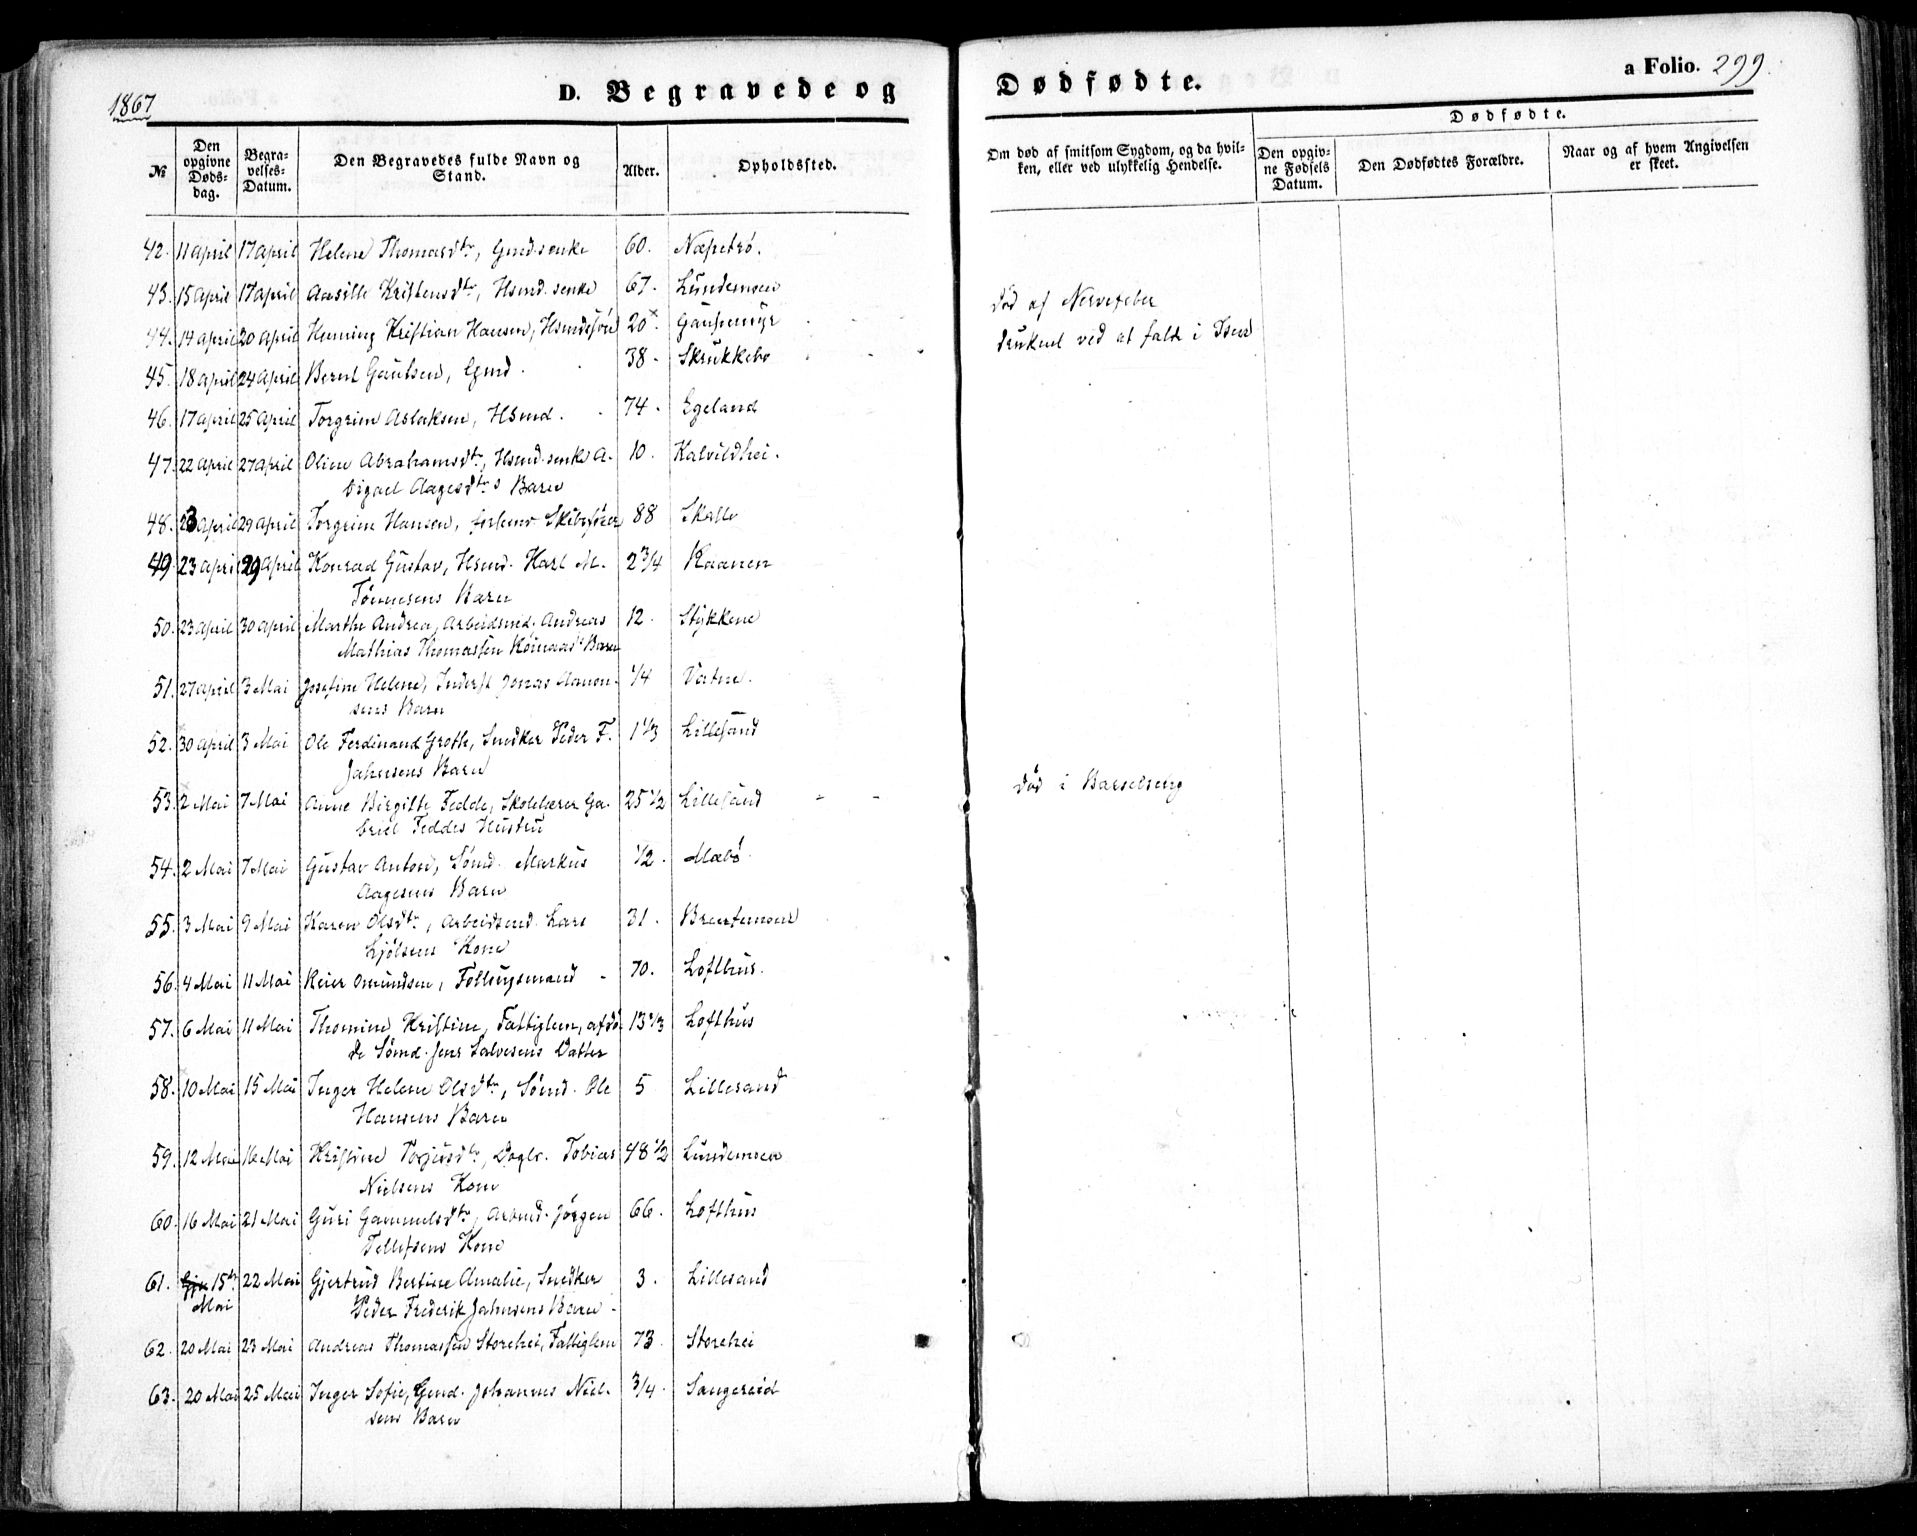 1867
D. Begravede og
Dødfødte.
a Folio. 299.
№
Den opgivne Døds-dag.
Begra-velses-Datum.
Den Begravedes fulde Navn og Stand.
Alder.
Opholdssted.
Om død af smitsom Sygdom, og da hvil-ken, eller ved ulykkelig Hendelse.
Dødfødte.
Den opgiv-ne Fødsels Datum.
Den Dødfødtes Forældre.
Naar og af hvem Angivelsen er skeet.
42. 11 April 17 April Helene Thomasdtr, Gmdsenke 60. Næpetrø.
43. 15 April 17 April Aasille Kristensdtr, Hsmd.senke 67. Lundemoen
død af Nervefeber
44. 14 April 20 April Henning Kristian Hansen, Hsmdssøn 20 Gaupemyr
druknet ved at falde i Isen
45. 18 April 24 April Bernt Gautsen, Gmd. 38. Skrukkebo
46. 17 April 25 April Torgrim Aslaksen, Hsmd. 74. Egeland
47. 22 April 27 April Oline Abrahamsdtr, Hsmd.senke A- 10. Kalvildhei.
bigael Aagesdtrs Barn
48. 23 April 29 April Torgrim Hansen, forhenv. Skibsfører 88 Skalle
49 23 April 29 April Konrad Gustav, Hsmd. Karl M. 2 3/4 Kaanen
Tønnesens Barn
50. 23 April 30 April Marthe Andrea, Arbeidsmd. Andreas 12. Stykkene
Mathias Thomassen Barn
51. 27 April 3 Mai Josefine Helene, Inderst Jonas Aanon- 1/4 Vatne.
sens Barn
52. 30 April 3 Mai Ole Ferdinand Groth, Snedker Peder F. 1 1/3 Lillesand
Jahnsens Barn
53. 2 Mai 7 Mai Anne Birgitte Fedde, Skolelærer Ga- 25 1/2 Lillesand
død i Barselseng
briel Feddes Hustru
54. 2 Mai 7 Mai Gustav Anton, Sømd. Markus 1/2. Mæbø.
Aagesens Barn
55. 3 Mai 9 Mai Karen Olsdtr, Arbeidsmd. Lars 31.
Ljølsens Kone
56. 4 Mai 11 Mai Reier Omundsen, Follougsmand 70. Lofthus.
57. 6 Mai 11 Mai Thomine Kristine, Fattiglem, afdø- 13 2/3 Lofthus
de Sømd. Jens Salvesens Datter
58. 10 Mai 15 Mai Inger Helene Olsdtr, Sømd. Ole 5 Lillesand
Hansens Barn
59. 12 Mai 16 Mai Kristine Torjusdtr, Daglr. Tobias 48 1/2 Lundemoen
Nielsens Kone
60. 16 Mai 21 Mai Guri Gammelsdtr, Arbmd. Jørgen 66. Lofthus
Tellefsens Kone
61. 15de 22 Mai Gjertrud Bertine Amalie, Snedker 3. Lillesand
Mai Peder Frederik Jahnsens Barn
62. 20 Mai 23 Mai Andreas Thomassen Storehei, Fattiglem 73. Storehei
63. 20 Mai 25 Mai Inger Sofie, Gmd. Johannes Niel- 3/4. Sangereid
sens Barn